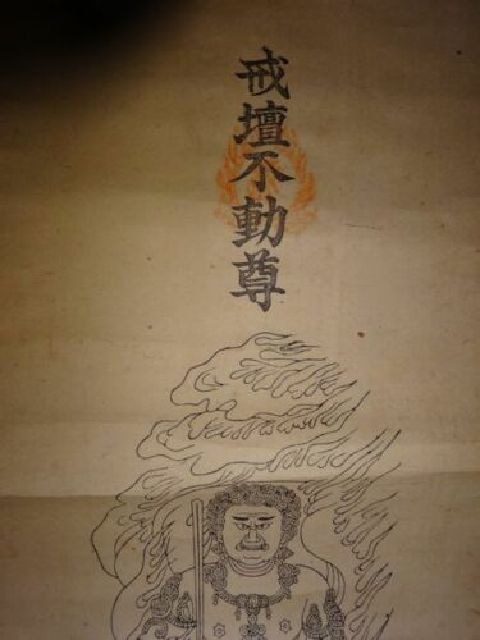 戒壇不動尊